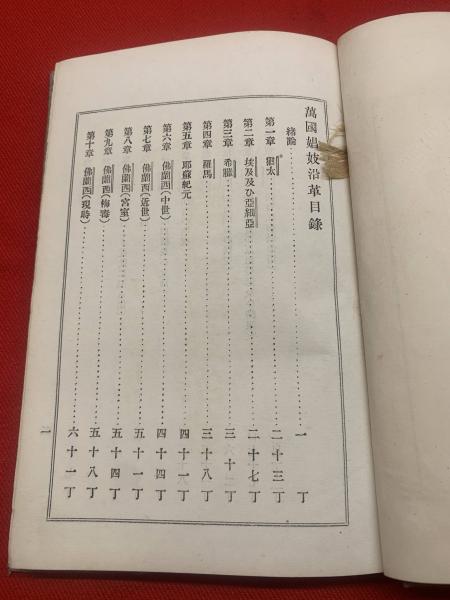 萬國娼妓沿革目錄
緖論………一丁
第一章 猶太………二十三丁
第二章 埃及及ひ亞細亞………二十七丁
第三章 希臘………三十二丁
第四章 羅馬………三十八丁
第五章 耶蘇紀元………四十一丁
第六章 佛蘭西(中世)………四十四丁
第七章 佛蘭西(近世)………五十一丁
第八章 佛蘭西(宮室)………五十四丁
第九章 佛蘭西(梅毒)………五十八丁
第十章 佛蘭西(現時)………六十一丁
一